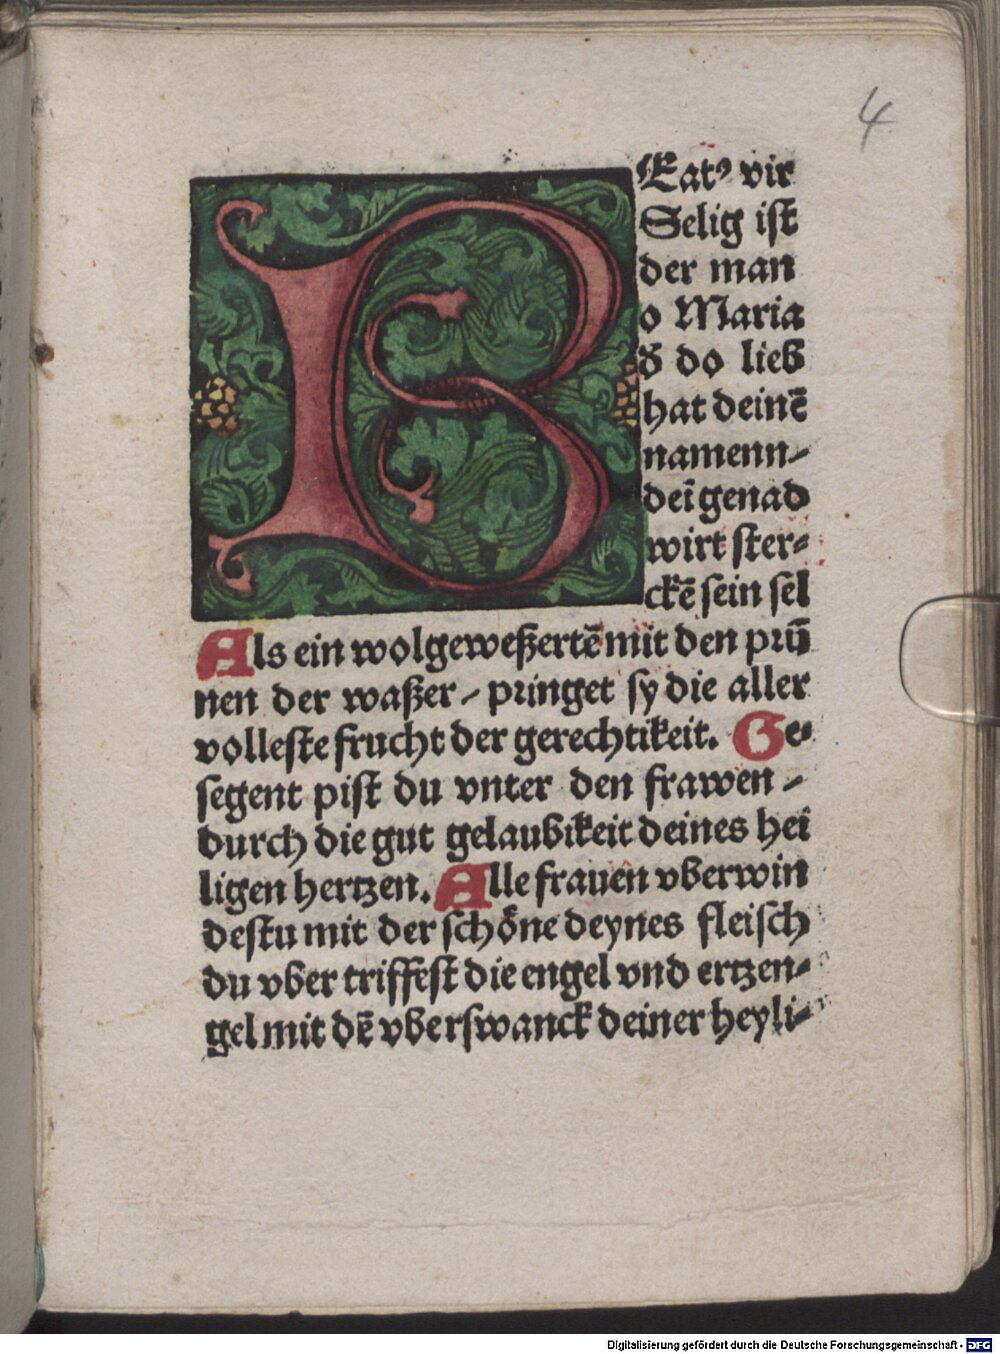 4
BEatꝰ vir
Selig ist
der man
o Maria
d̕ do lieb
hat deinē
namenn-
deī genad
wirt ster-
ckē sein sel
Als ein wolgeweßertē mit den prū
nen der waßer - pringet sy die aller
volleste frucht der gerechtikeit. Ge-
segent pist du vnter den frawen -
durch die gut gelaubikeit deines hei
ligen hertzen. Alle frauen vberwin
destu mit der schöne deynes fleisch
du vber triffest die engel vnd ertzen-
gel mit dē vberswanck deiner heyli-
Digitalisierung gefördert durch die Deutsche Forschungsgemeinschaft - DFG